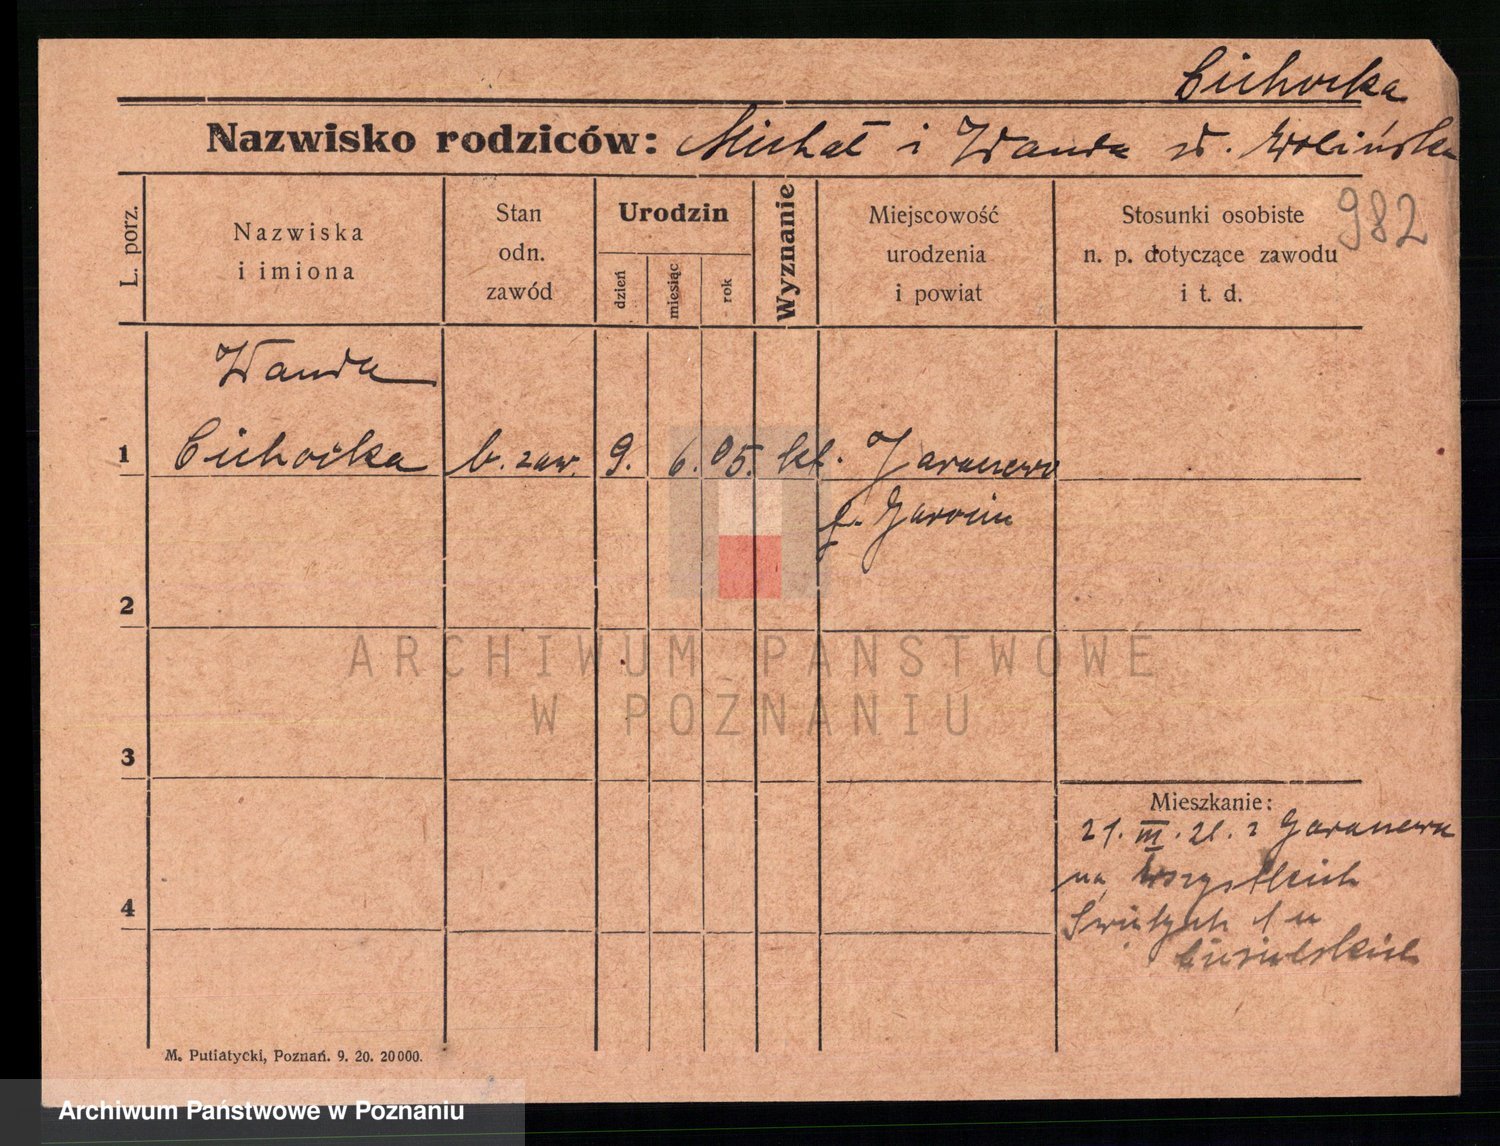 Cichocka
Nazwisko rodziców: Michał i Wanda d. Wolińska
982
L. porz.
Nazwiska
i imiona
Stan
odn.
zawód
Urodzin
dzień
miesiąc
rok
Wyznanie
Miejscowość
urodzenia
i powiat
Stosunki osobiste
n. p. dotyczące zawodu
i t. d.
Wanda
1 Cichocka b. zaw. 9. 6. 05. kt.
p. Jarocin
2
3
4
Mieszkanie:
21. III. 21. z
na Wszystkich
Świętych 1 u
M. Putiatycki, Poznań. 9. 20. 20000.
ARCHIWUM PAŃSTWOWE
W POZNANIU
Archiwum Państwowe w Poznaniu